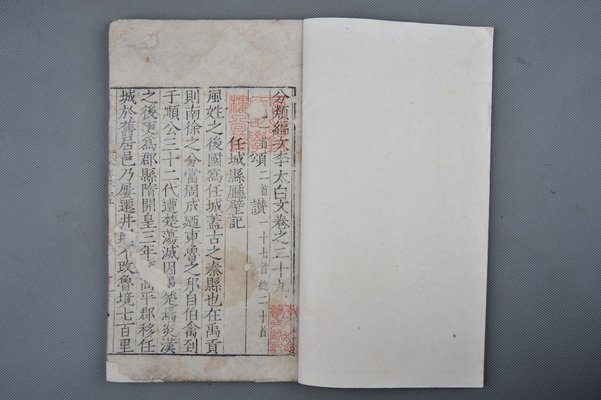 分類編次李太白文卷之二十九
記一首頌二首讚一十七首總二十首
任城縣廳壁記
風姓之後國為任城蓋古之秦縣也在禹貢
則南徐之分當周成廼東魯之邦自伯禽到
于順公三十二代遭楚蕩滅因屬楚焉炎漢
之後更為郡縣隋開皇三年高平郡移任
城於舊居邑乃屢遷井不改魯境七百里